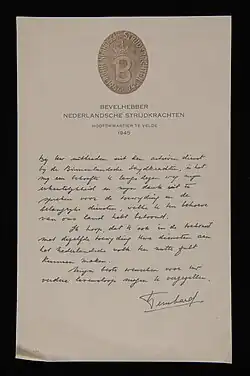 B
BEVELHEBBER
NEDERLANDSCHE STRIJDKRACHTEN
HOOFDKWARTIER TE VELDE
1945
Bij het uittreden uit den actieven dienst
bij de Binnenlandsche Strijdkrachten, is het
mij een behoefte U langs dezen weg mijn
erkentelijkheid en mijn dank uit te
spreken voor de toewijding en de
belangrijke diensten, welke U ten behoeve
van ons land hebt betoond.
Ik hoop, dat U ook in de toekomst
met dezelfde toewijding Uwe diensten aan
het Nederlandsche volk ten nutte zult
kunnen maken.
Mijn beste wenschen voor Uw
verdere levensloop mogen U vergezellen.
Bernhard